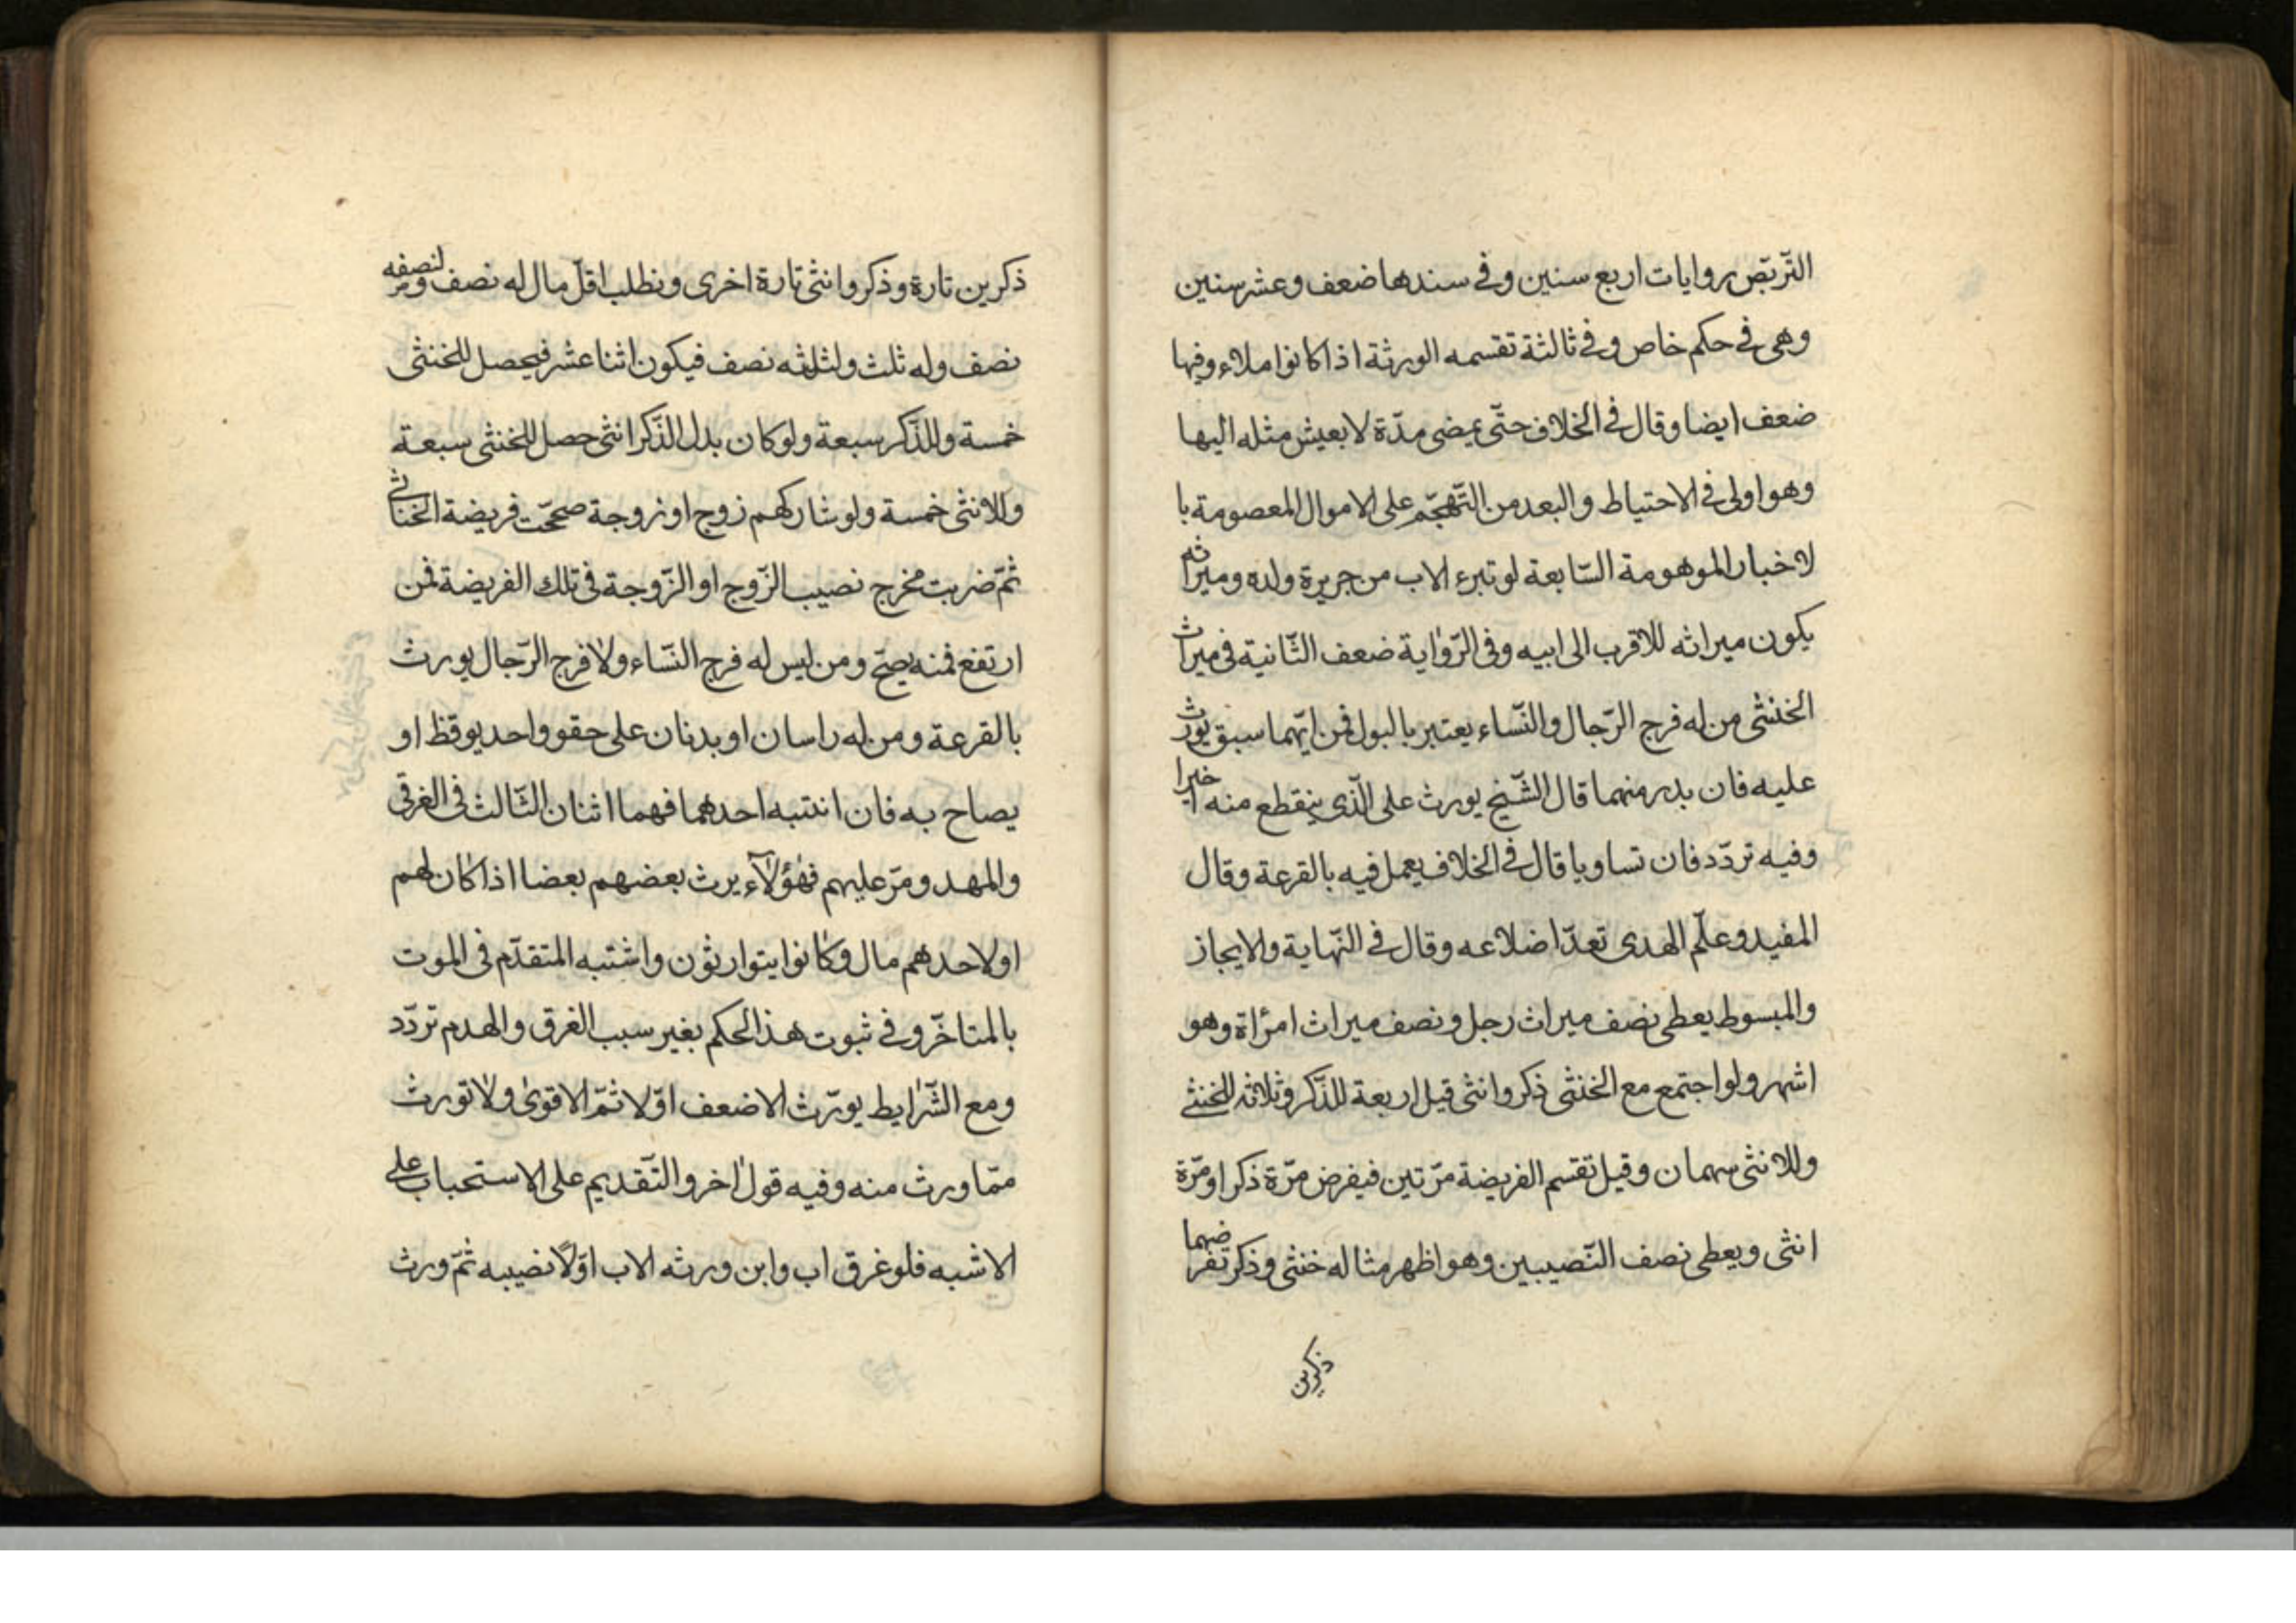 التّربّص روايات اربع سنين وفي سندها ضعف وعشر سنين
وهى في حكم خاص وفي ثالثة تقسمه الورثة اذا كانوا ملاء وفيها
ضعف ايضا وقال في الخلاف حتّى يمضى مدّة لا يعيش مثله اليها
وهو اولى في الاحتياط والبعد من التّهجّم على الاموال المعصومة با
لاخبار الموهومة السّابعة لو تبرء الاب من جريرة ولده وميراثه
يكون ميراثه للاقرب الى ابيه وفى الرّواية ضعف الثّانية فى ميراث
الخنثى من له فرج الرّجال والنّساء يعتبر بالبول فمن ايّهما سبق يورث
عليه فان بدر منهما قال الشّيخ يورث على الّذى ينقطع منه اخيرا
وفيه تردّد فان تساويا قال في الخلاف يعمل فيه بالقرعة وقال
المفيد وعلم الهدى تعدّ اضلاعه وقال في النّهاية والايجاز
والمبسوط يعطى نصف ميراث رجل ونصف ميراث امرأة وهو
اشهر ولو اجتمع مع الخنثى ذكر وانثى قيل اربعة للذّكر وثلاثه للخنثى
وللانثى سهمان وقيل تقسم الفريضة مرّتين فيفرض مرّة ذكرا ومرّة
انثى ويعطى نصف النّصيبين وهو اظهر مثاله خنثى وذكر تفرضهما
ذكرين
ذكرين تارة وذكر وانثى تارة اخرى ونطلب اقلّ مال له نصف ولنصفه
نصف وله ثلث ولثلثه نصف فيكون اثنا عشر فيحصل للخنثى
خمسة وللذّكر سبعة ولو كان بدل الذّكر انثى حصل للخنثى سبعة
وللانثى خمسة ولو شاركهم زوج او زوجة صححّت فريضة الخناثى
ثمّ ضربت مخرج نصيب الزّوج او الزّوجة فى تلك الفريضة فمن
ارتفع فمنه يصحّ ومن ليس له فرج النّساء ولا فرج الرّجال يورث
بالقرعة ومن له راسان او بدنان على حقو واحد يوقظ او
يصاح به فان انتبه احدهما فهما اثنان الثّالث فى الغرقى
والمهدومرّ عليهم فهؤلآء يرث بعضهم بعضا اذا كان لهم
او لاحدهم مال وكانوا يتوارثون واشتبه المتقدّم فى الموت
بالمتاخّر وفي ثبوت هذا الحكم بغير سبب الغرق والهدم تردّد
ومع الشّرايط يورّث الاضعف اوّلا ثمّ الاقوى ولا تورث
ممّا ورث منه وفيه قول اخر والتّقديم على الاستحباب على
الاشبه فلو غرق اب وابن ورثه الاب اوّلا نصيبه ثمّ ورث